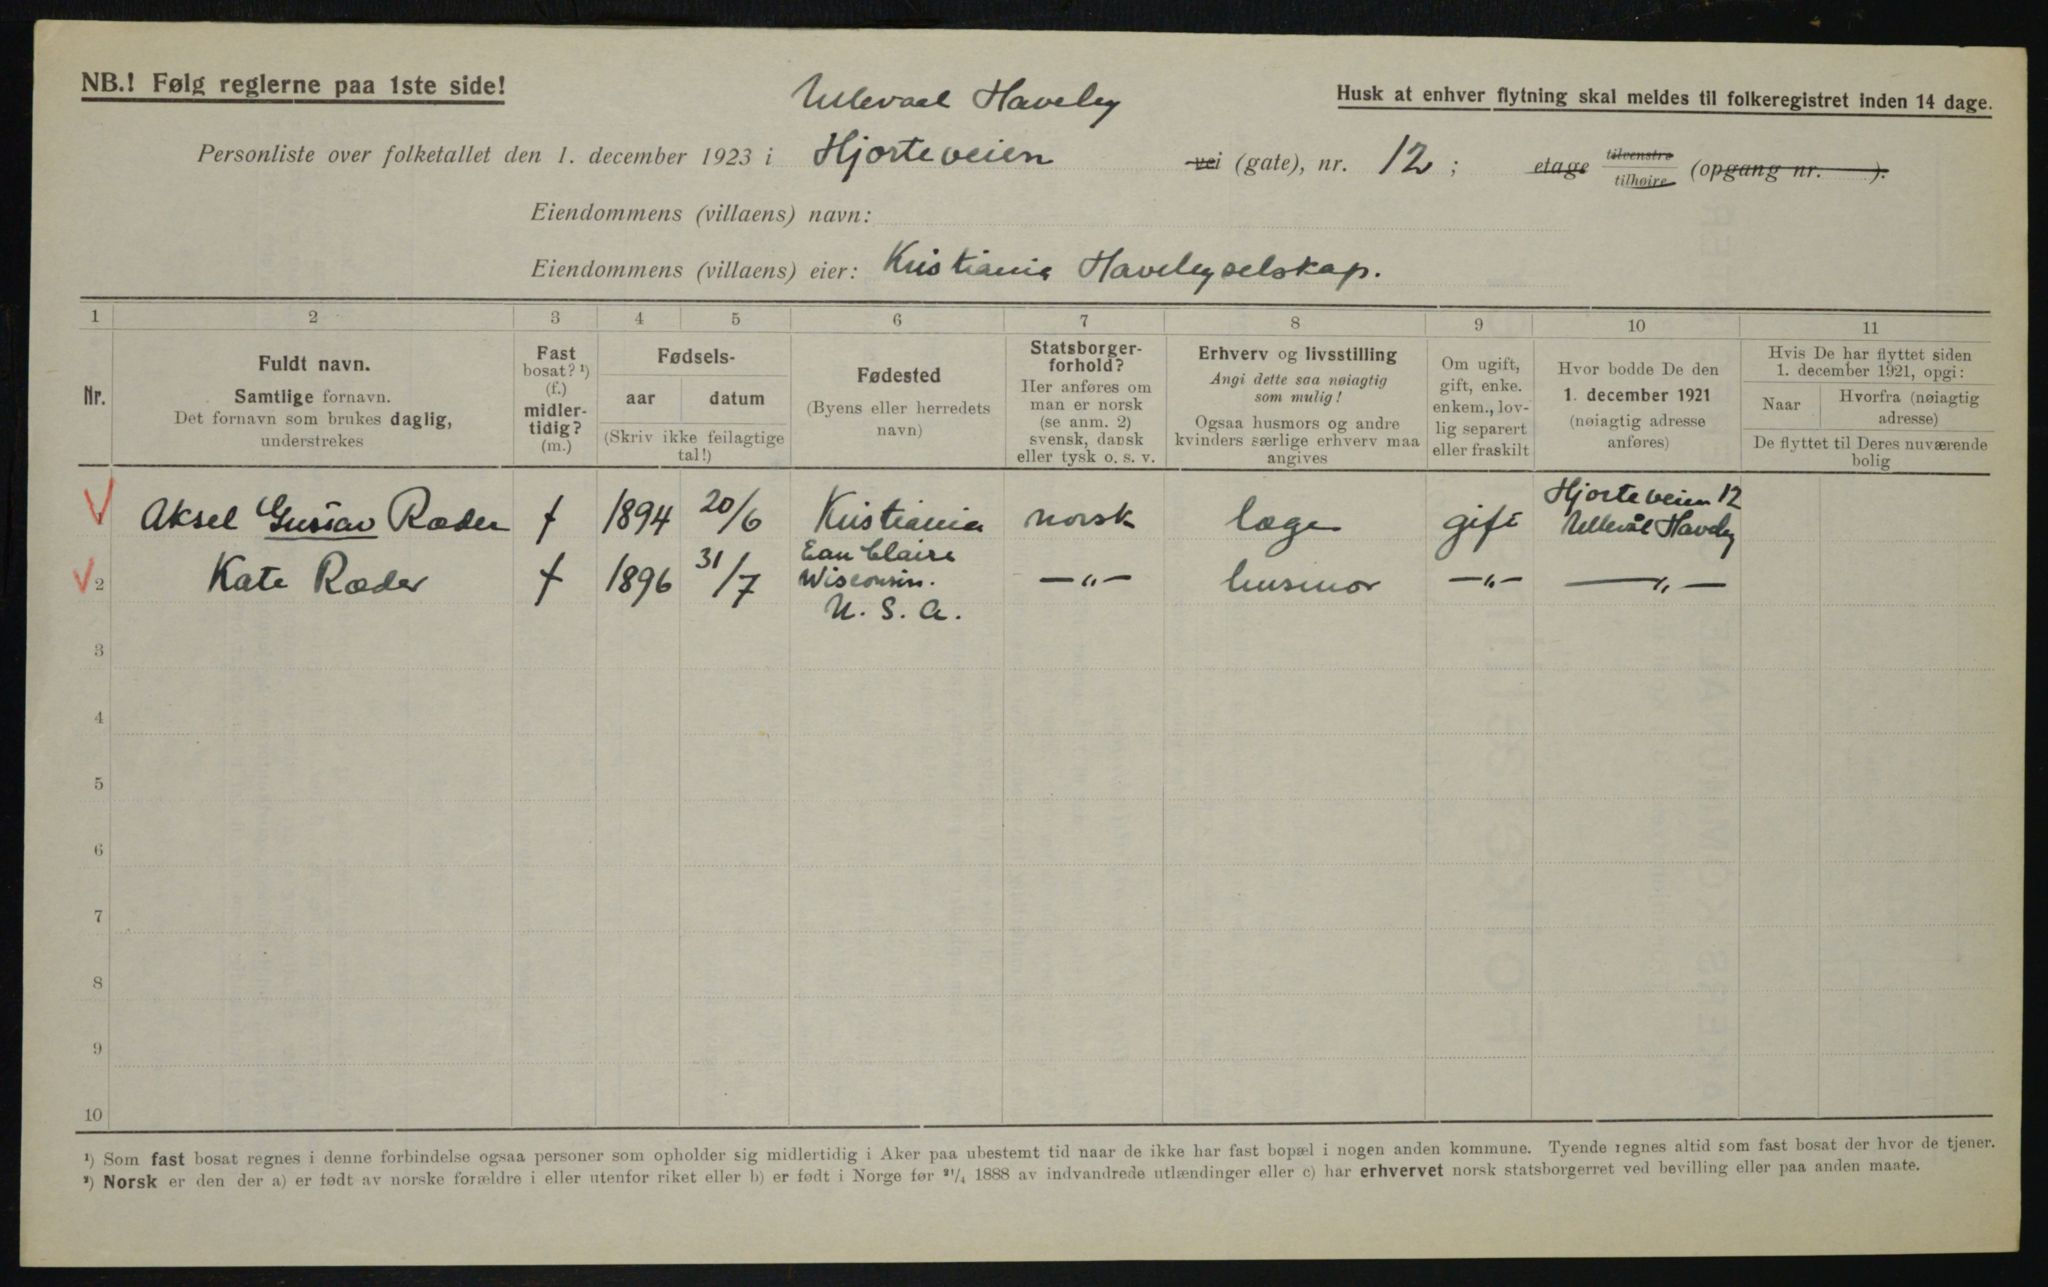 NB.! Følg reglerne paa 1ste side!
Ullevaal Haveby
Husk at enhver flytning skal meldes til folkeregistret inden 14 dage.
Personliste over folketallet den 1. december 1923 i Hjorteveien vei (gate), nr. 12 ; etage tilvenstre tilhøire (opgang nr. ).
Eiendommens (villaens) navn:
Eiendommens (villaens) eier: Kristiania Havebyselskap.
1 2 3 4 5 6 7 8 9 10 11
Nr.
Fuldt navn.
Samtlige fornavn.
Det fornavn som brukes daglig,
understrekes
Fast
bosat? ¹)
(f.)
midler-
tidig?
(m.)
Fødsels-
aar datum
(Skriv ikke feilagtige
tal!)
Fødested
(Byens eller herredets
navn)
Statsborger-
forhold?
Her anføres om
man er norsk
(se anm. 2)
svensk, dansk
eller tysk o. s. v.
Erhverv og livsstilling
Angi dette saa nøiagtig
som mulig!
Ogsaa husmors og andre
kvinders særlige erhverv maa
angives
Om ugift,
gift, enke.
enkem., lov-
lig separert
eller fraskilt
Hvor bodde De den
1. december 1921
(nøiagtig adresse
anføres)
Hvis De har flyttet siden
1. december 1921, opgi:
Naar
Hvorfra (nøiagtig
adresse)
De flyttet til Deres nuværende
bolig
Aksel Gustav Ræder f 1894 20/6 Kristiania norsk læge gift Hjorteveien 12
Ullevål Haveby
2 Kate Ræder f 1896 31/7 Eau Claire
Wisconsin.
U. S. A. —"— husmor —"— —"—
3
4
5
6
7
8
9
10
¹) Som fast bosat regnes i denne forbindelse ogsaa personer som opholder sig midlertidig i Aker paa ubestemt tid naar de ikke har fast bopæl i nogen anden kommune. Tyende regnes altid som fast bosat der hvor de tjener.
²) Norsk er den der a) er født av norske forældre i eller utenfor riket eller b) er født i Norge før ²¹/₄ 1888 av indvandrede utlændinger eller c) har erhvervet norsk statsborgerret ved bevilling eller paa anden maate.